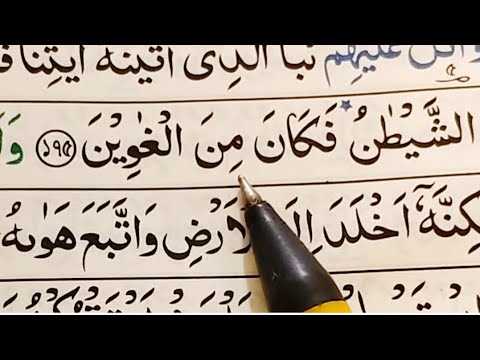 عَلَيْهِمْ نَبَاَ الَّذِىْۤ اٰتَيْنٰهُ اٰيٰتِنَا فَ
الشَّيْطٰنُ فَكَانَ مِنَ الْغٰوِيْنَ ۝١٧٥ وَلَ
كِنَّهٗۤ اَخْلَدَ اِلَى الْاَرْضِ وَاتَّبَعَ هَوٰىهُ